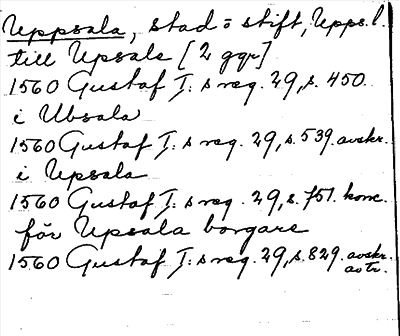 Uppsala, stad o stift, Upps. l.
till Upsale [2 ggr]
1560 Gustaf I:s reg. 29, s. 450.
i Ubsala
1560 Gustaf I:s reg. 29, s. 539. avskr.
i Upsala
1560 Gustaf I:s reg. 29, s. 751. konc.
för Upsala borgare
1560 Gustaf I:s reg. 29, s. 829. avskr.
avtr.